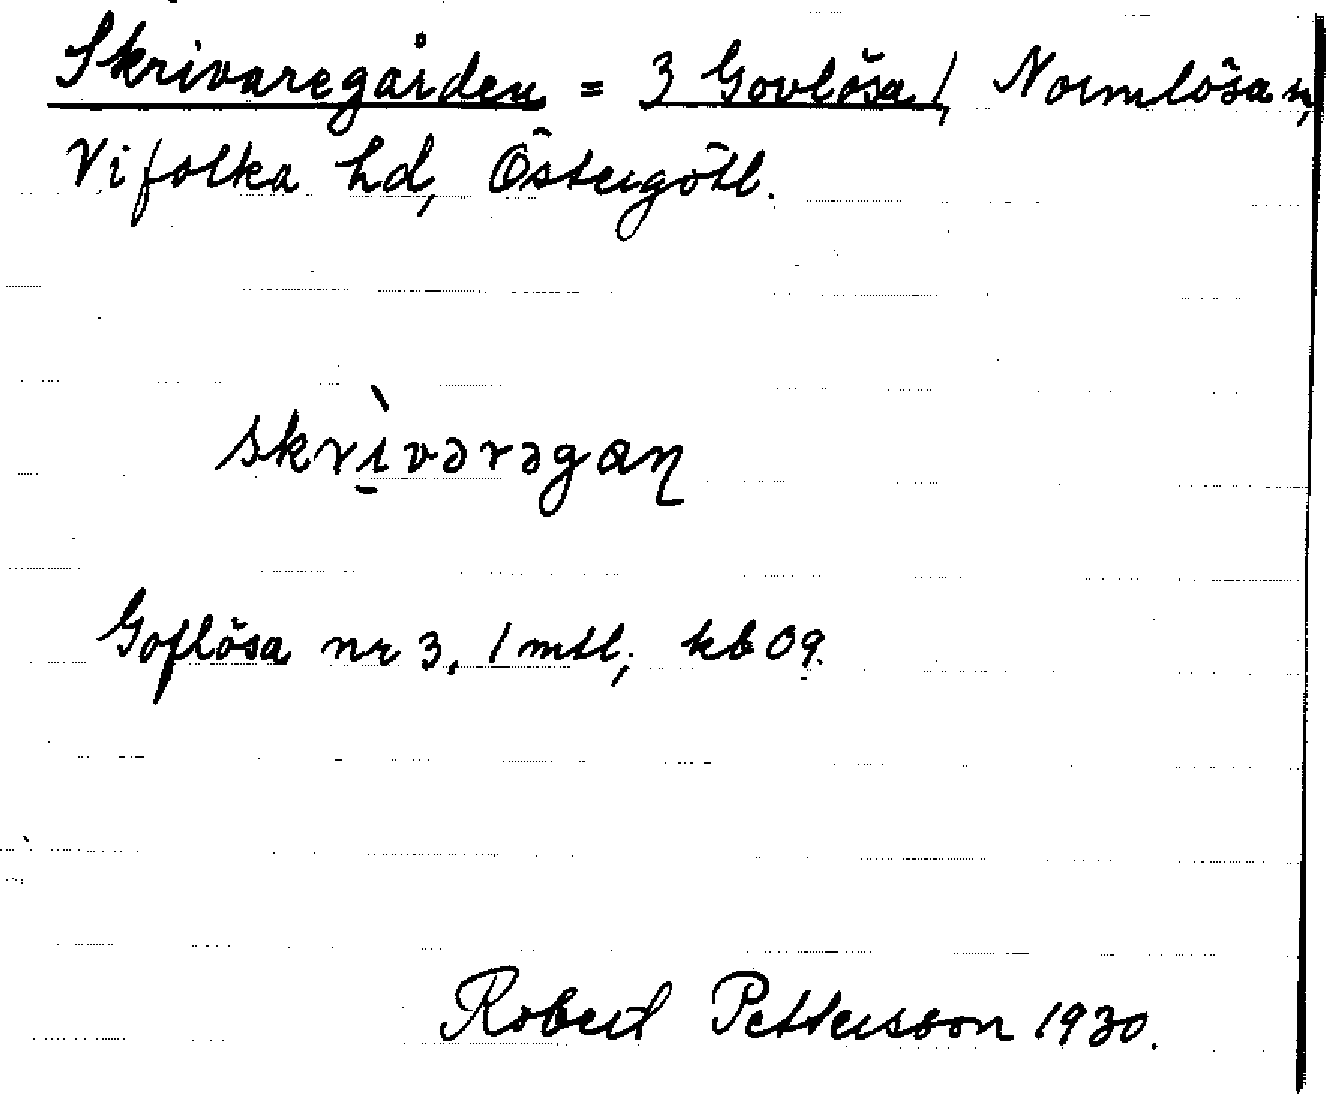 Skrivaregården = 3 Govlösa 1, Normlösa sn,
Vifolka hd, Östergötl.
skrìvərəgaɳ
Goflösa nr 3, 1 mtl; kb 09.
Robert Pettersson 1930.